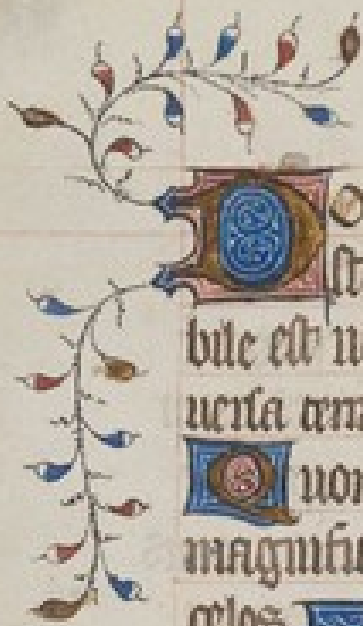 Do
st
bile est n
uersa terr
Quon
magnifi
celos